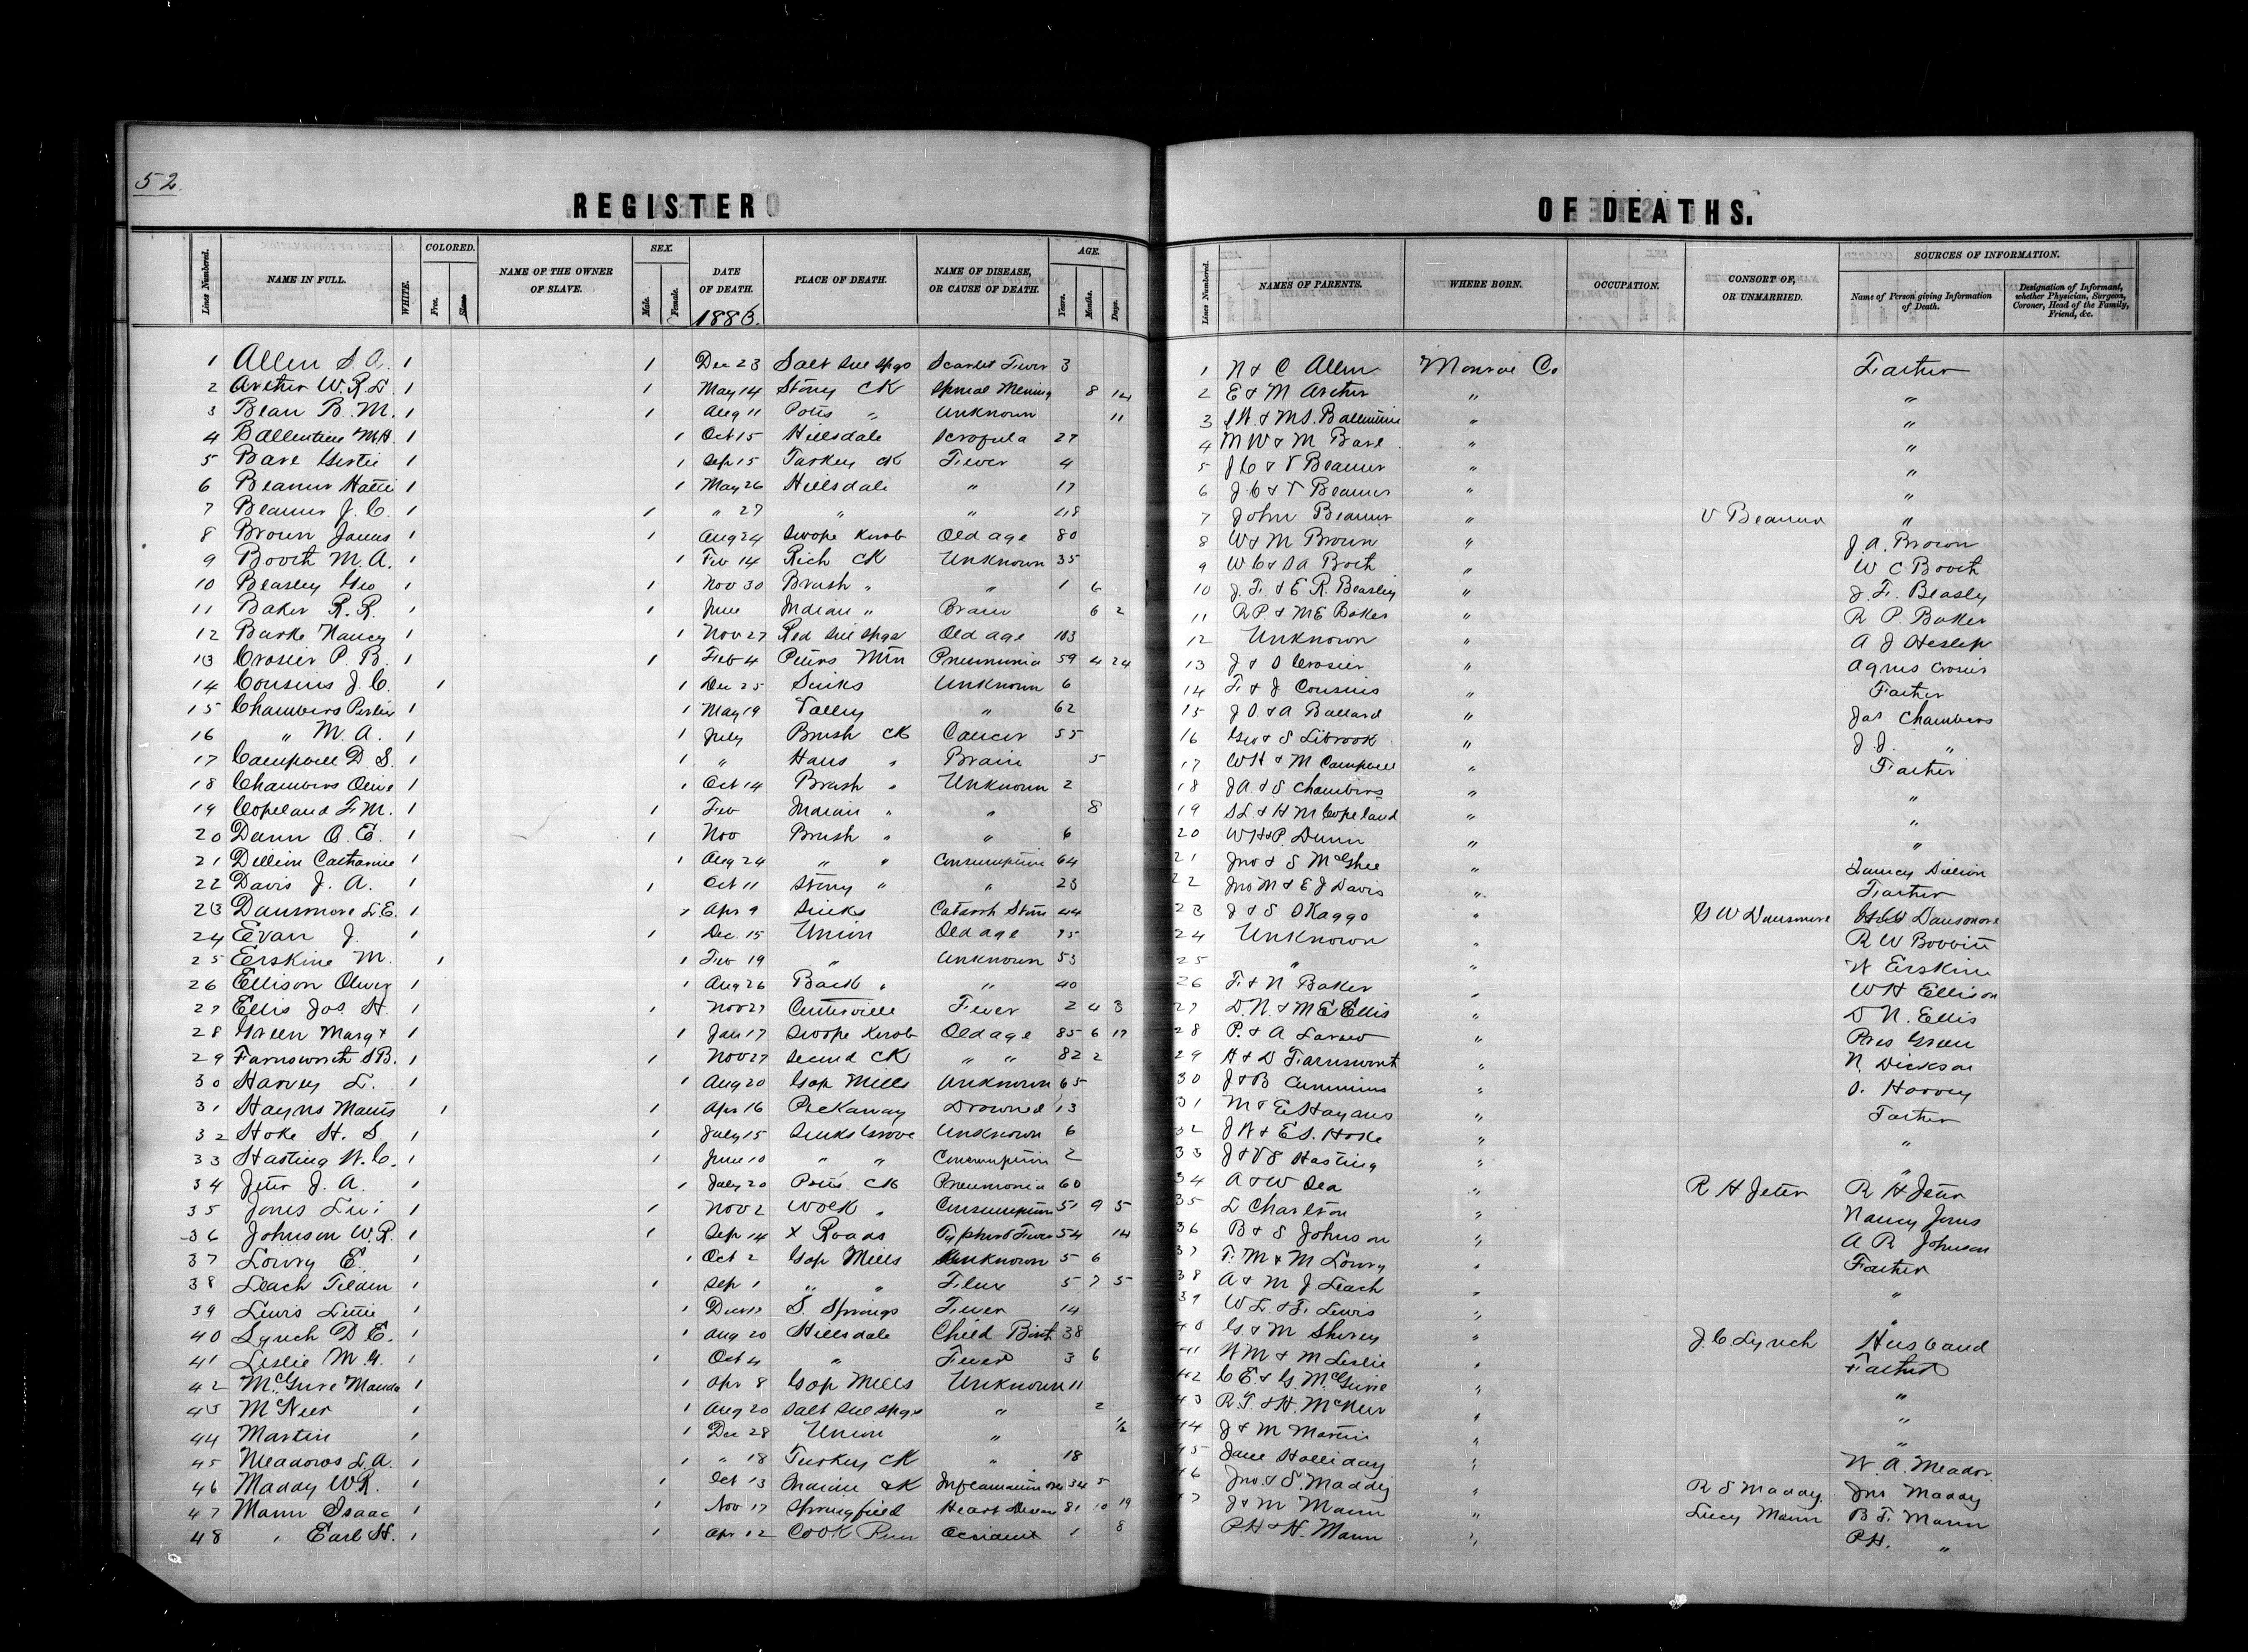 52
REGISTER OF DEATHS.
Lines Numbered. NAME IN FULL. WHITE. COLORED. Free. Slave. NAME OF THE OWNER OF SLAVE. SEX. Male. Female. DATE OF DEATH. PLACE OF DEATH. NAME OF DISEASE, OR CAUSE OF DEATH. AGE. Years. Months. Days. Lines Numbered. NAMES OF PARENTS. WHERE BORN. OCCUPATION. CONSORT OF, OR UNMARRIED. SOURCES OF INFORMATION. Name of Person giving Information of Death. Designation of Informant, whether Physician, Surgeon, Coroner, Head of the Family, Friend, &c.
1886.
1 Allen S. A. 1 1 Dec 23 Salt Sul Spgs Scarlet Fever 3 1 N & C Allen Monroe Co Farther
2 W. R. L. 1 1 May 14 Stony CK Spinal Mening 8 14 2 E & M " "
3 Bean B. M. 1 1 Aug 11 Potts " Unknown 11 3 & M S. Ballentine " "
4 Ballentine M. H. 1 1 Oct 15 Hillsdale Scrofula 27 4 M W & M Bare " "
5 Bare Gertie 1 1 Sep 15 Turkey CK Fever 4 5 J C & V Beamer " "
6 Beamer Hattie 1 1 May 26 Hillsdale " 17 6 J. C & V Beamer " "
7 Beamer J. C. 1 1 " 27 " " 48 7 John Beamer " V Beamer "
8 Brown James 1 1 Aug 24 Swope Knob Old age 80 8 W & M Brown " J. A. Brown
9 Booth M. A. 1 1 Feb 14 Rich CK Unknown 35 9 W C & S A Booth " W C Booth
10 Beasley Geo 1 1 Nov 30 Brush " " 1 6 10 J. F. & E. R. Beasley " J. F. Beasly
11 Baker R. R. 1 1 June Indian " Brain 6 2 11 R P. & M E Baker " R P. Baker
12 Burke Nancy 1 1 Nov 27 Red Sul Spgs Old age 103 12 Unknown " A J Heslep
13 Crosier P. B. 1 1 Feb 4 Peters Mtn Pneumunia 59 4 24 13 J & O Crosier " Agnes Crosier
14 Cousins J. C. 1 1 Dec 25 Sinks Unknown 6 14 F. & J Cousins " Farther
15 Chambers 1 1 May 19 Valley " 62 15 J O. & A Ballard " Jas Chambers
16 " M. A. 1 1 July Brush CK Cancer 55 16 Geo & S Librook " J. J. "
17 Campbell D. S. 1 1 " Hans " Brain 5 17 W H & M Campbell " Farther
18 Chambers Olive 1 1 Oct 14 Brush " Unknown 2 18 J A. & S Chambers " "
19 Copeland F. M. 1 1 Feb Indian " " 8 19 S L & H M Copeland " "
20 Dunn O. E. 1 1 Nov Brush " " 6 20 W H & P. Dunn " "
21 Dillion Catharine 1 1 Aug 24 " " Consumption 64 21 Jno & S McGhee " Quincy Dillion
22 Davis J. A. 1 1 Oct 11 Stony " " 23 22 Jno M & E J Davis " Farther
23 Dansmore L. E. 1 1 Apr 9 Sinks 44 23 J & S " G W Dunsmore Dansmore
24 Evan J. 1 1 Dec 15 Union Old age 75 24 Unknown " R W Bobbitt
25 Erskine M. 1 1 Feb 19 " Unknown 53 25 " " W Erskine
26 Ellison Oliver 1 1 Aug 26 Back " " 40 26 F. & N Baker " W H Ellison
27 Ellis Jos H. 1 1 Nov 27 Centerville Fever 2 4 3 27 D. N. & M E Ellis " D N. Ellis
28 Green Margt 1 1 Jan 17 Swope Knob Old age 85 6 17 28 P. & A Larew " Green
29 Farnsworth S B. 1 1 Nov 27 Second CK " " 82 2 29 H & D Farnsworth " N. Dickson
30 Harvey L. 1 1 Aug 20 Gap Mills Unknown 65 30 J & B Cummins " O. Harvey
31 Haynes 1 1 Apr 16 Pickaway Drowned 13 31 M & E Haynes " Farther
32 Hoke H. S. 1 1 July 15 Sinks Grove Unknown 6 32 J W & E S. Hoke " "
33 Hasting W. C. 1 1 June 10 " " Consumption 2 33 J & V S Hasting " "
34 Jeter J. A. 1 1 July 20 Potts CK Pneumonia 60 34 A & W Dea " R H Jeter R H Jeter
35 Jones Levi 1 1 Nov 2 Wolk " Consumption 51 9 5 35 L Charlton " Nancy Jones
36 Johnson W. R. 1 1 Sep 14 X Roads Typhoid Fever 54 14 36 B & S Johnson " A R Johnson
37 Lowry E. 1 1 Oct 2 Gap Mills Unknown 5 6 37 F. M & M Lowry " Farther
38 Leach Tilden 1 1 Sep 1 " " Flux 5 7 5 38 A & M J. Leach " "
39 Lewis Lettie 1 1 Dec 17 S. Springs Fever 14 39 W L. & F. Lewis " "
40 Lynch D. E. 1 1 Aug 20 Hillsdale Child Birth 38 40 G & M Shirey " J. C. Lynch Husband
41 Leslie M. G. 1 1 Oct 4 " Fever 3 6 41 W M & M Leslie " Farther
42 McGuire Maude 1 1 Apr 8 Gap Mills Unknown 11 42 C E & G. McGuire " "
43 McNeer 1 1 Aug 20 Salt Sul Spgs " 2 43 R. T. & H. McNeer " "
44 Martin 1 1 Dec 28 Union " ½ 44 J & M Martin " "
45 Meadows L. A. 1 1 " 18 Turkey CK " 18 45 Jane Holliday " W. A. Meador
46 Maddy W R. 1 1 Oct 13 Indian CK 34 5 46 Jno. & S. Maddy " R S Maddy Jno Maddy
47 Mann Isaac 1 1 Nov 17 Springfield Heart Disease 81 10 19 47 J & M Mann " Lucy Mann B F. Mann
48 " Earl H. 1 1 Apr 12 Cook Run Accident 1 8 P H & H. Mann " P H. "